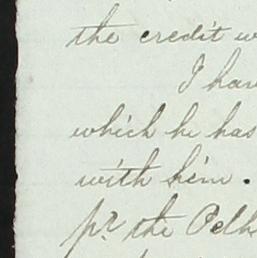 the credit w
I hav
which he has
with him.
pr the Pelh